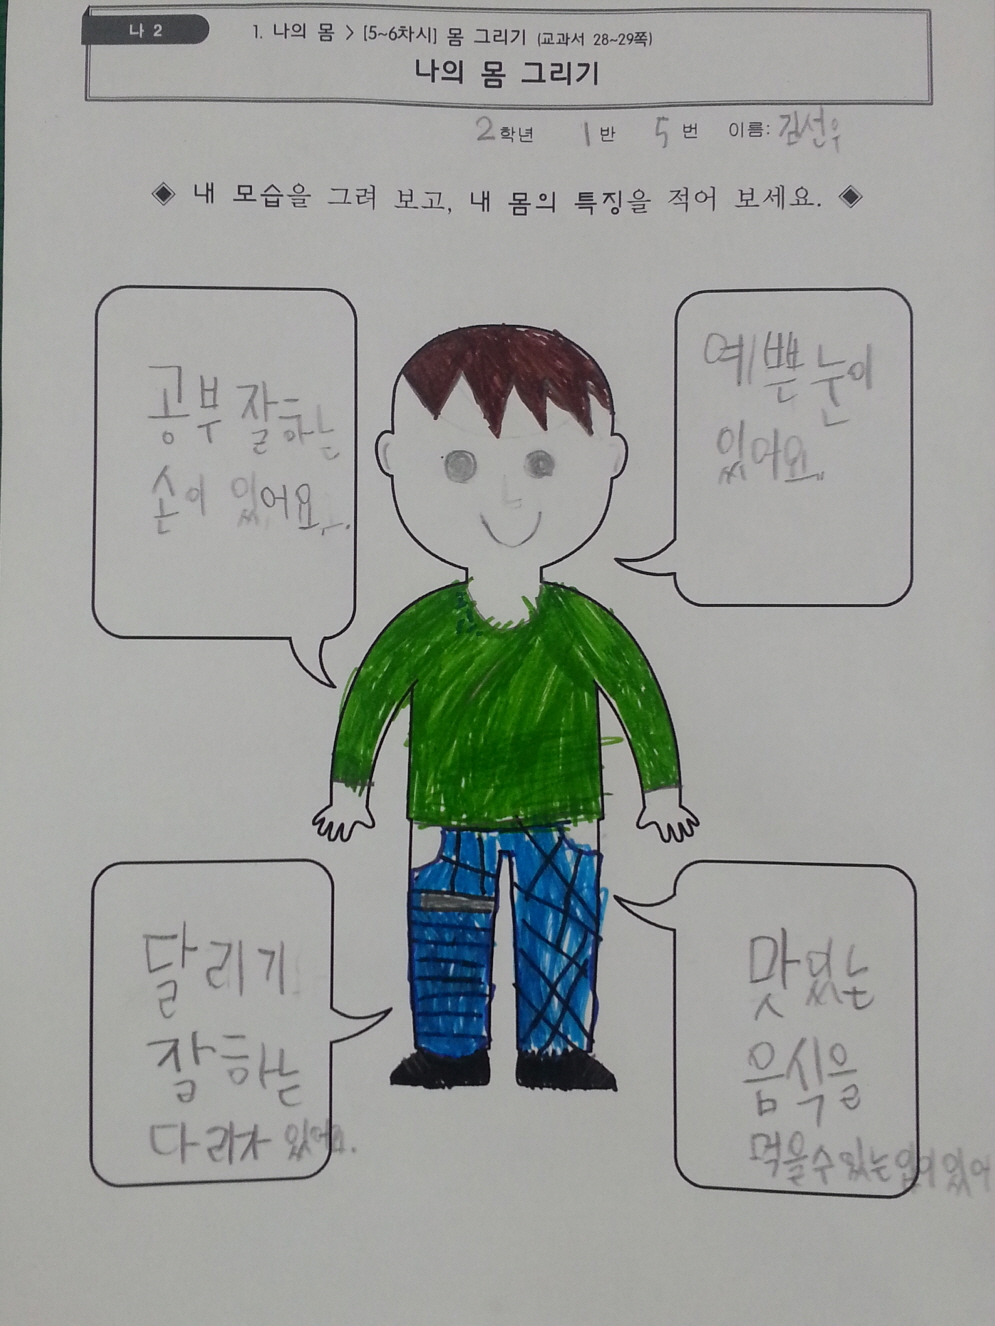 나 2
1. 나의 몸 > [5~6차시] 몸 그리기 (교과서 28~29쪽)
나의 몸 그리기
2학년 1반 5번 이름: 김선우
◈ 내 모습을 그려 보고, 내 몸의 특징을 적어 보세요. ◈
공부 잘하는
손이 있어요.
예쁜 눈이
있어요.
달리기
잘하는
다리가 있어요.
맛있는
음식을
먹을수있는입이있어